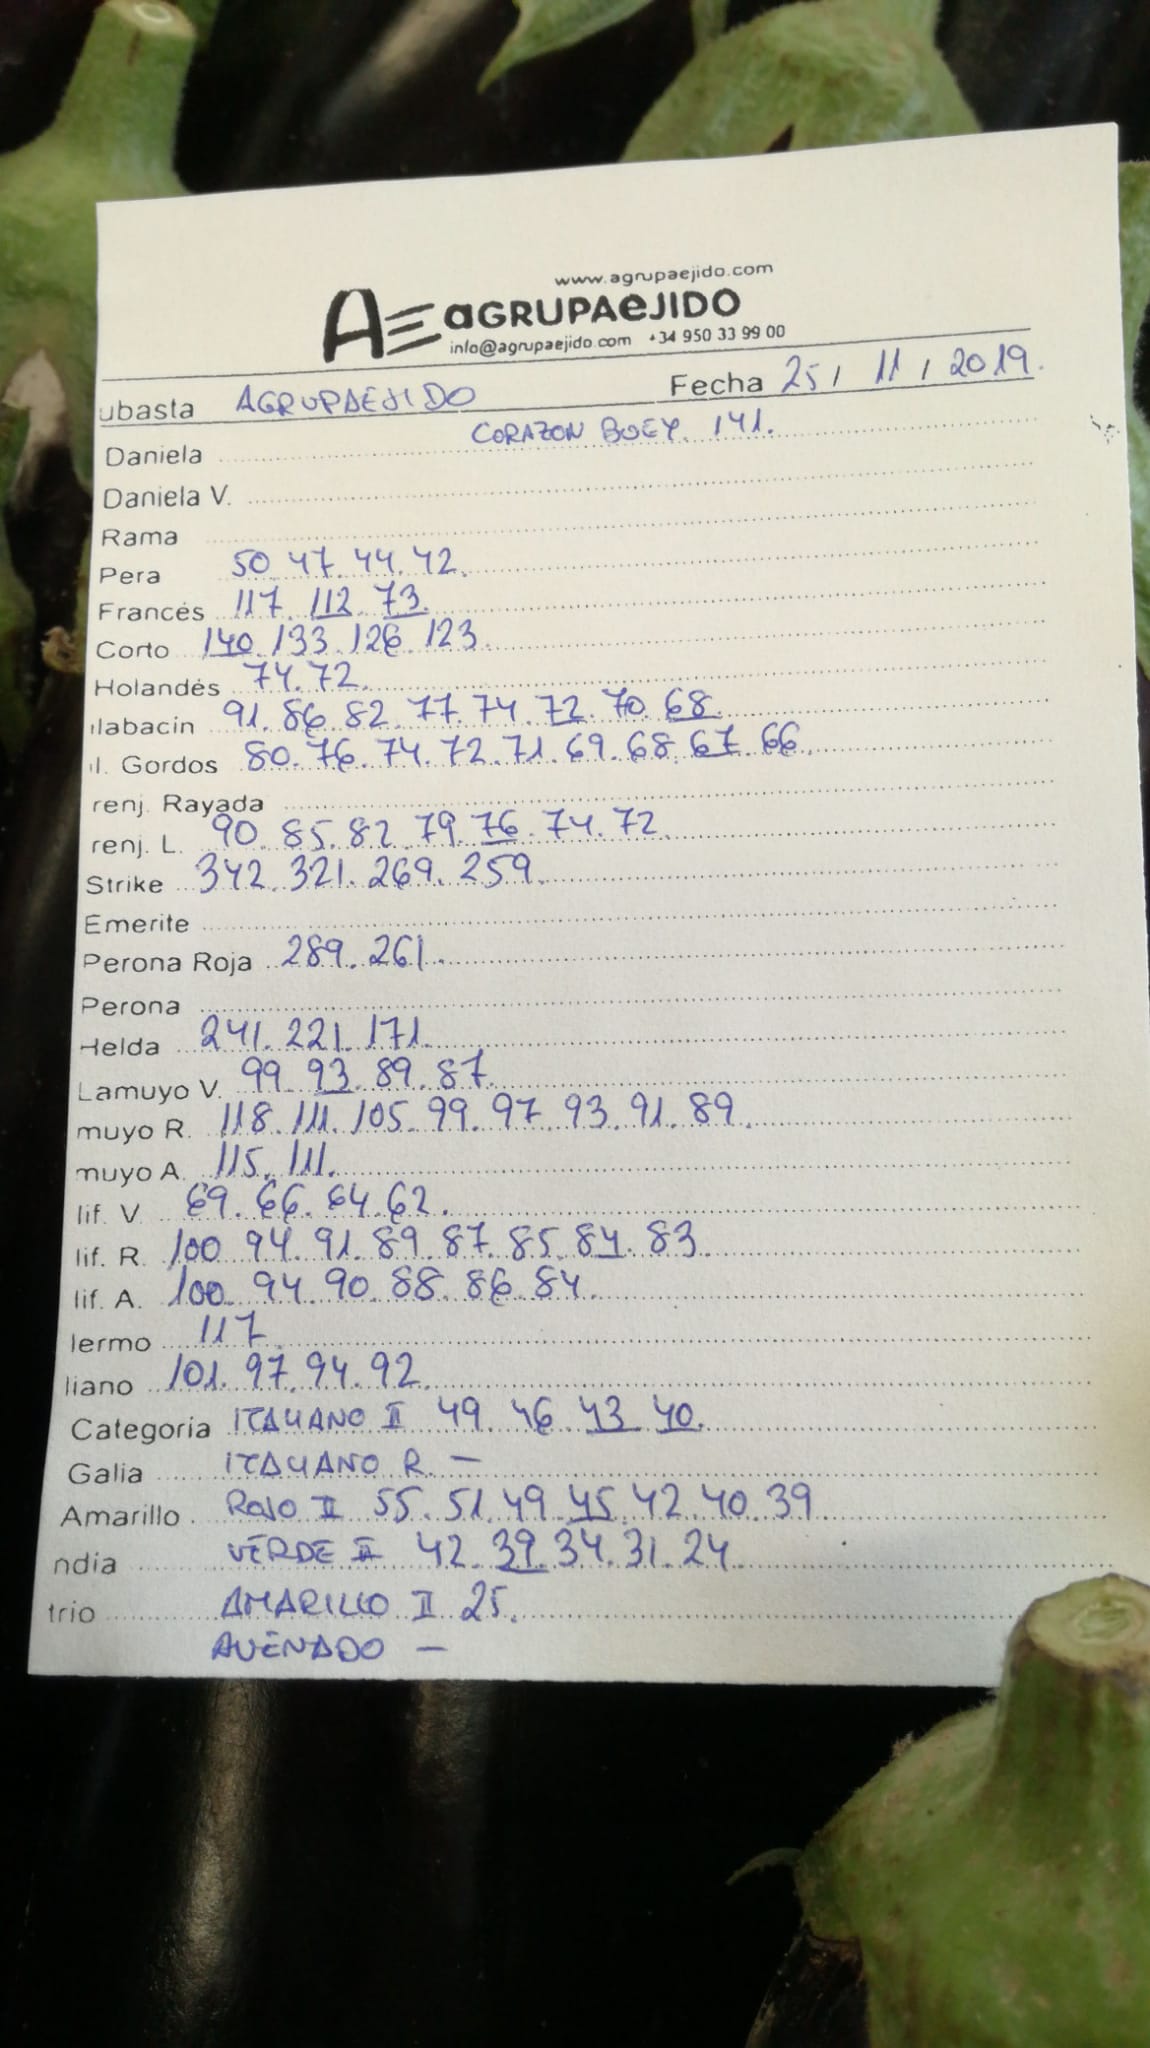 www.agrupaejido.com
AE aGRUPAeJIDO
info@agrupaejido.com +34 950 33 99 00
ubasta AGRUPAEJIDO Fecha 25, 11, 2019.
CORAZON BUEY. 141.
Daniela
Daniela V.
Rama
Pera 50. 47. 44. 42.
Francés 117. 112. 73.
Corto 140. 133. 126. 123.
Holandés 74. 72.
labacín 91. 86. 82. 77. 74. 72. 70. 68.
l. Gordos 80. 76. 74. 72. 71. 69. 68. 67. 66.
renj. Rayada
renj. L. 90. 85. 82. 79. 76. 74. 72.
Strike 342. 321. 269. 259.
Emerite
Perona Roja 289. 261.
Perona
Helda 241. 221. 171.
Lamuyo V. 99. 93. 89. 87.
muyo R. 118. 111. 105. 99. 97. 93. 91. 89.
muyo A. 115. 111.
lif. V. 69. 66. 64. 62.
lif. R. 100. 94. 91. 89. 87. 85. 84. 83.
lif. A. 100. 94. 90. 88. 86. 84.
lermo 117.
liano 101. 97. 94. 92.
Categoría ITALIANO II 49. 46. 43. 40.
Galia ITALIANO R. —
Amarillo ROJO II 55. 51. 49. 45. 42. 40. 39
ndia VERDE II 42. 39. 34. 31. 24.
trio AMARILLO II 25.
AVENADO —